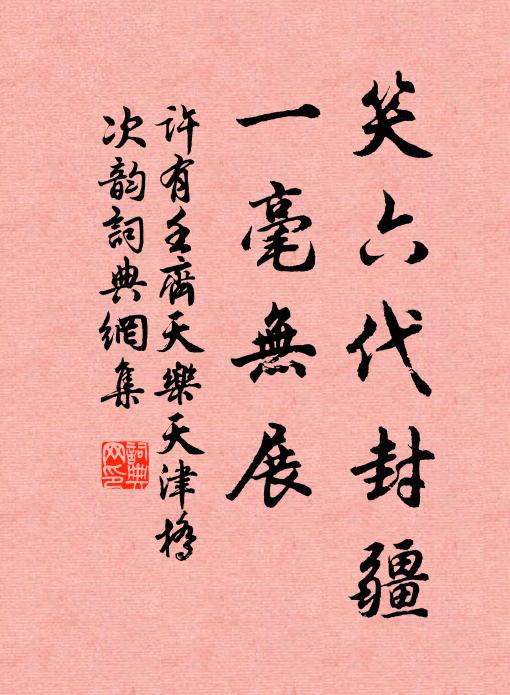 笑六代封疆
一毫無展
許有壬齊天樂天津橋
次韵詞典網集
詞典網印